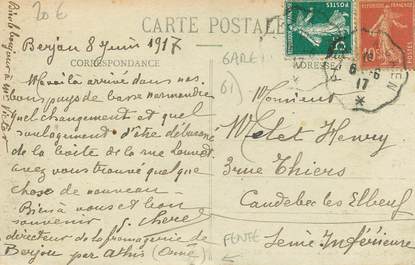 206
CARTE POSTALE
Berjou 8 Juin 1917
CORRESPONDANCE
ADRESSE
GARE
61)
POSTES
10
6 - 6
17
Me voilà arrivé dans nos
bons pays de basse normandie
Quel changement et quel
soulagement d'être débarrassé
de la boîte de la rue
avez vous trouvé quelque
chose de nouveau
Bien à vous et bon
souvenir
directeur de la fromagerie de
Berjou par Athis (Orne)
Monsieur
Henry
3 rue Thiers
Caudebec les Elbeuf
Seine Inférieure
FENTE